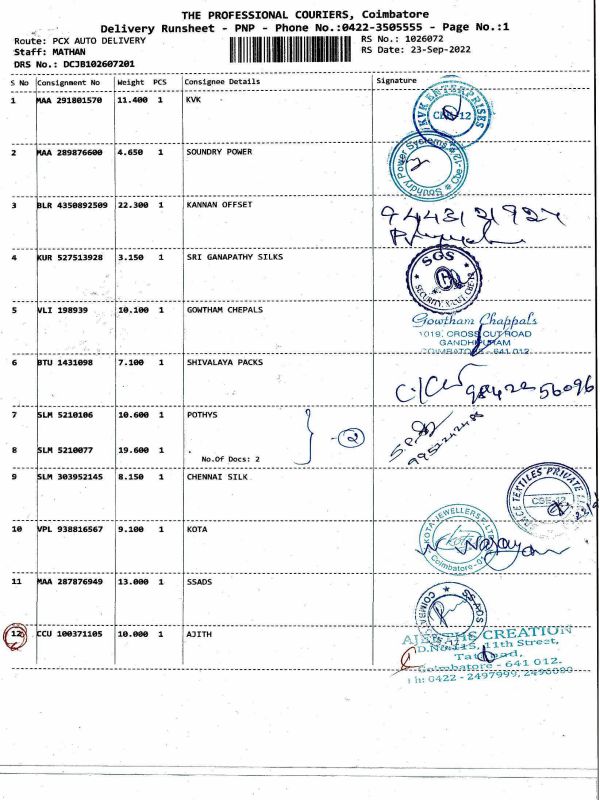 THE PROFESSIONAL COURIERS, Coimbatore
Delivery Runsheet - PNP - Phone No.:0422-3505555 - Page No.:1
Route: PCX AUTO DELIVERY
RS No.: 1026072
Staff: MATHAN
RS Date: 23-Sep-2022
DRS No.: DCJB102607201
S No Consignment No Weight PCS Consignee Details Signature
1 MAA 291801570 11.400 1 KVK
KVK ENTERPRISES
CBE-12
2 MAA 289876600 4.650 1 SOUNDRY POWER
Soundry Power Systems * Cbe-12 *
3 BLR 4350892509 22.300 1 KANNAN OFFSET
4 KUR 527513928 3.150 1 SRI GANAPATHY SILKS
SGS
5 VLI 198939 10.100 1 GOWTHAM CHEPALS
Gowtham Chappals
1019, CROSS CUT ROAD
GANDHIPURAM
COIMBATORE - 641 012
6 BTU 1431098 7.100 1 SHIVALAYA PACKS
98422 56096
7 SLM 5210106 10.600 1 POTHYS
2
8 SLM 5210077 19.600 1 .
No.Of Docs: 2
9 SLM 303952145 8.150 1 CHENNAI SILK
TEXTILES PRIVATE
CBE-12
10 VPL 938816567 9.100 1 KOTA
KOTA JEWELLERS
kota
Coimbatore
11 MAA 287876949 13.000 1 SSADS
12 CCU 100371105 10.000 1 AJITH
CREATION
D.No:115, 11th Street,
Tatabad,
Coimbatore - 641 012.
Ph: 0422 - 2497999,